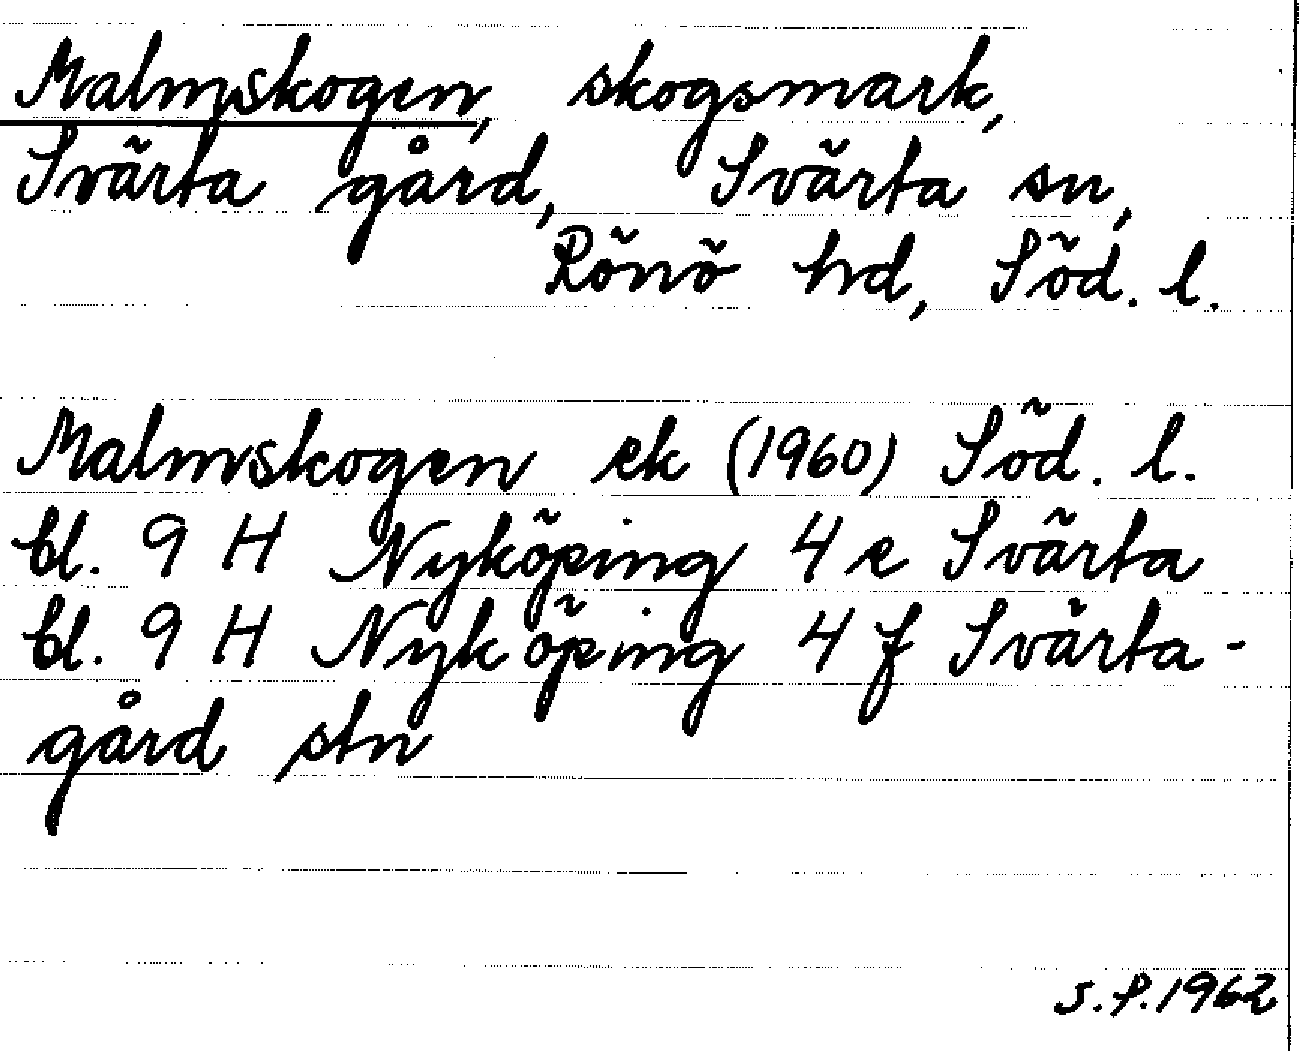 Malmskogen, skogsmark,
Svärta gård, Svärta sn,
Rönö hd, Söd. l.
Malmskogen ek (1960) Söd. l.
bl. 9 H Nyköping 4 e Svärta
bl. 9 H Nyköping 4 f Svärta-
gård stn
S.P.1962